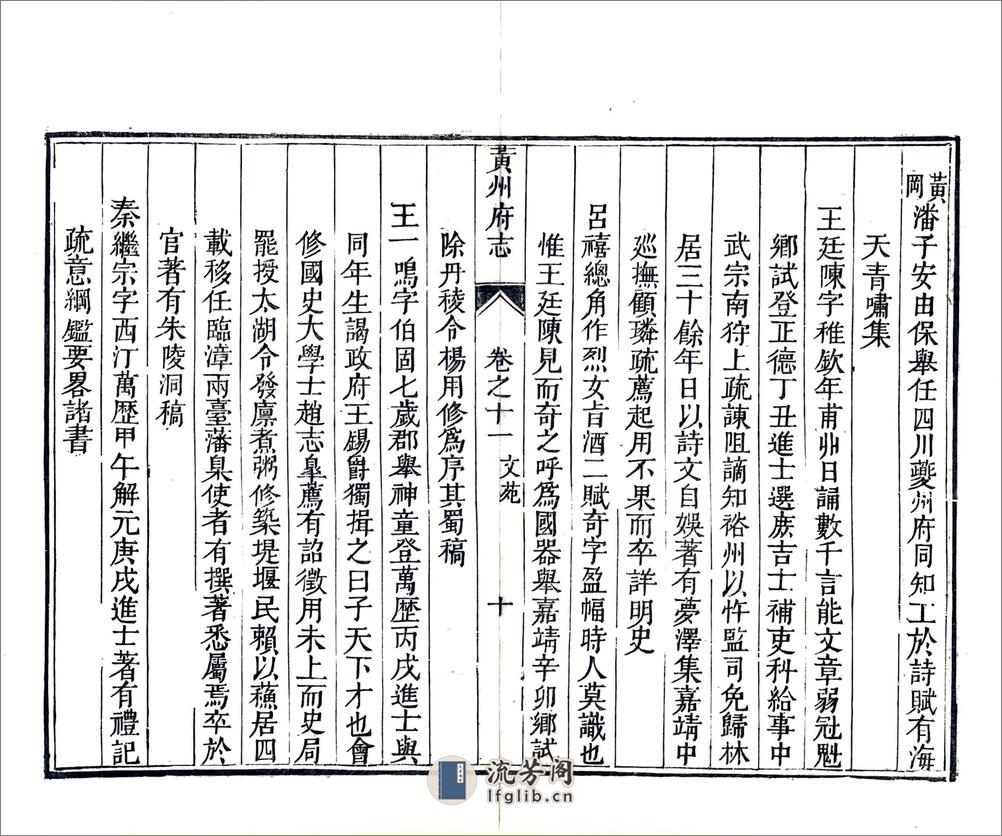 黃岡潘子安由保舉任四川夔州府同知工於詩賦有海
天青嘯集
王廷陳字稚欽年甫丱日誦數千言能文章弱冠魁
鄉試登正德丁丑進士選庶吉士補吏科給事中
武宗南狩上疏諫阻謫知裕州以忤監司免歸林
居三十餘年日以詩文自娛著有夢澤集嘉靖中
廵撫顧璘疏薦起用不果而卒詳明史
呂禧總角作烈女旨酒二賦奇字盈幅時人莫識也
惟王廷陳見而奇之呼爲國器舉嘉靖辛卯鄉試
黃州府志 卷之十一 文苑 十
除丹稜令楊用修爲序其蜀稿
王一鳴字伯固七歲郡舉神童登萬歷丙戌進士與
同年生謁政府王錫爵獨揖之曰子天下才也會
修國史大學士趙志臯薦有詔徵用未上而史局
罷授太湖令發廩煮粥修築堤堰民賴以蘓居四
載移任臨漳兩臺藩臬使者有撰著悉屬焉卒於
官著有朱陵洞稿
秦繼宗字西汀萬歷甲午解元庚戌進士著有禮記
疏意綱鑑要畧諸書
流芳阁
lfglib.cn